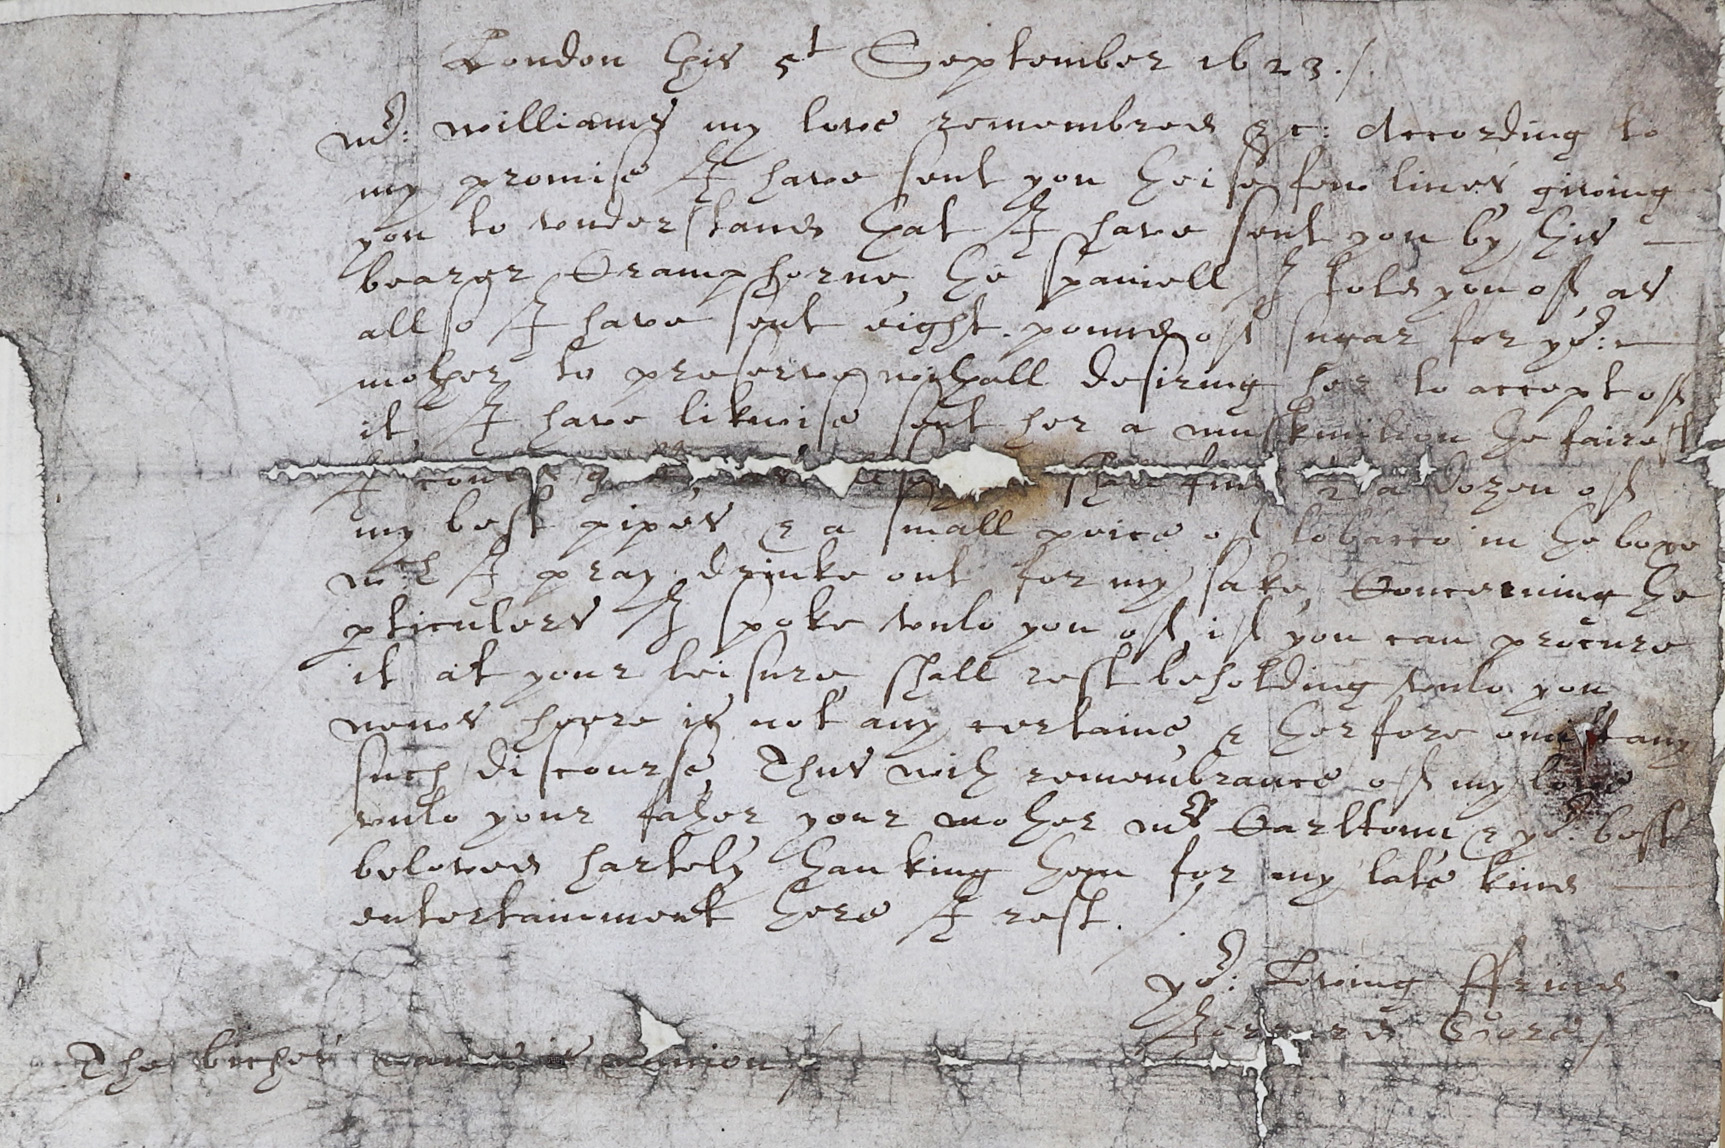 London this 5t September 1623./.
Mr: Williams my love remembred &c: According to
my promise I have sent you theise few lines giving
you to vnderstand that I have sent you by this —
bearer Cramphorne, the spaniell I told you off, as
allso I have sent eight pound off sugar for yor: —
mother to preserve, withall desiring her to accept off
it, I have likwise sent her a muskmilion the fairest
I could shall find a dozen off
my best pipes, & a small peice off tobacco in the boxe
wch I pray drinke out for my sake, Concerning the
pticulers I spoke vnto you off, iff you can procure
it at your leisure, shall rest beholding vnto you
newes heere is not any certaine, & therfore omitt any
such discourse, Thus with remembrance off my love
vnto your father, your mother Mrs Carltonn & yor: best
beloved hartely thanking them for my late kind —
entertainment there I rest.
yor: Loving ffriend
Gore/
The bitches name is Minion